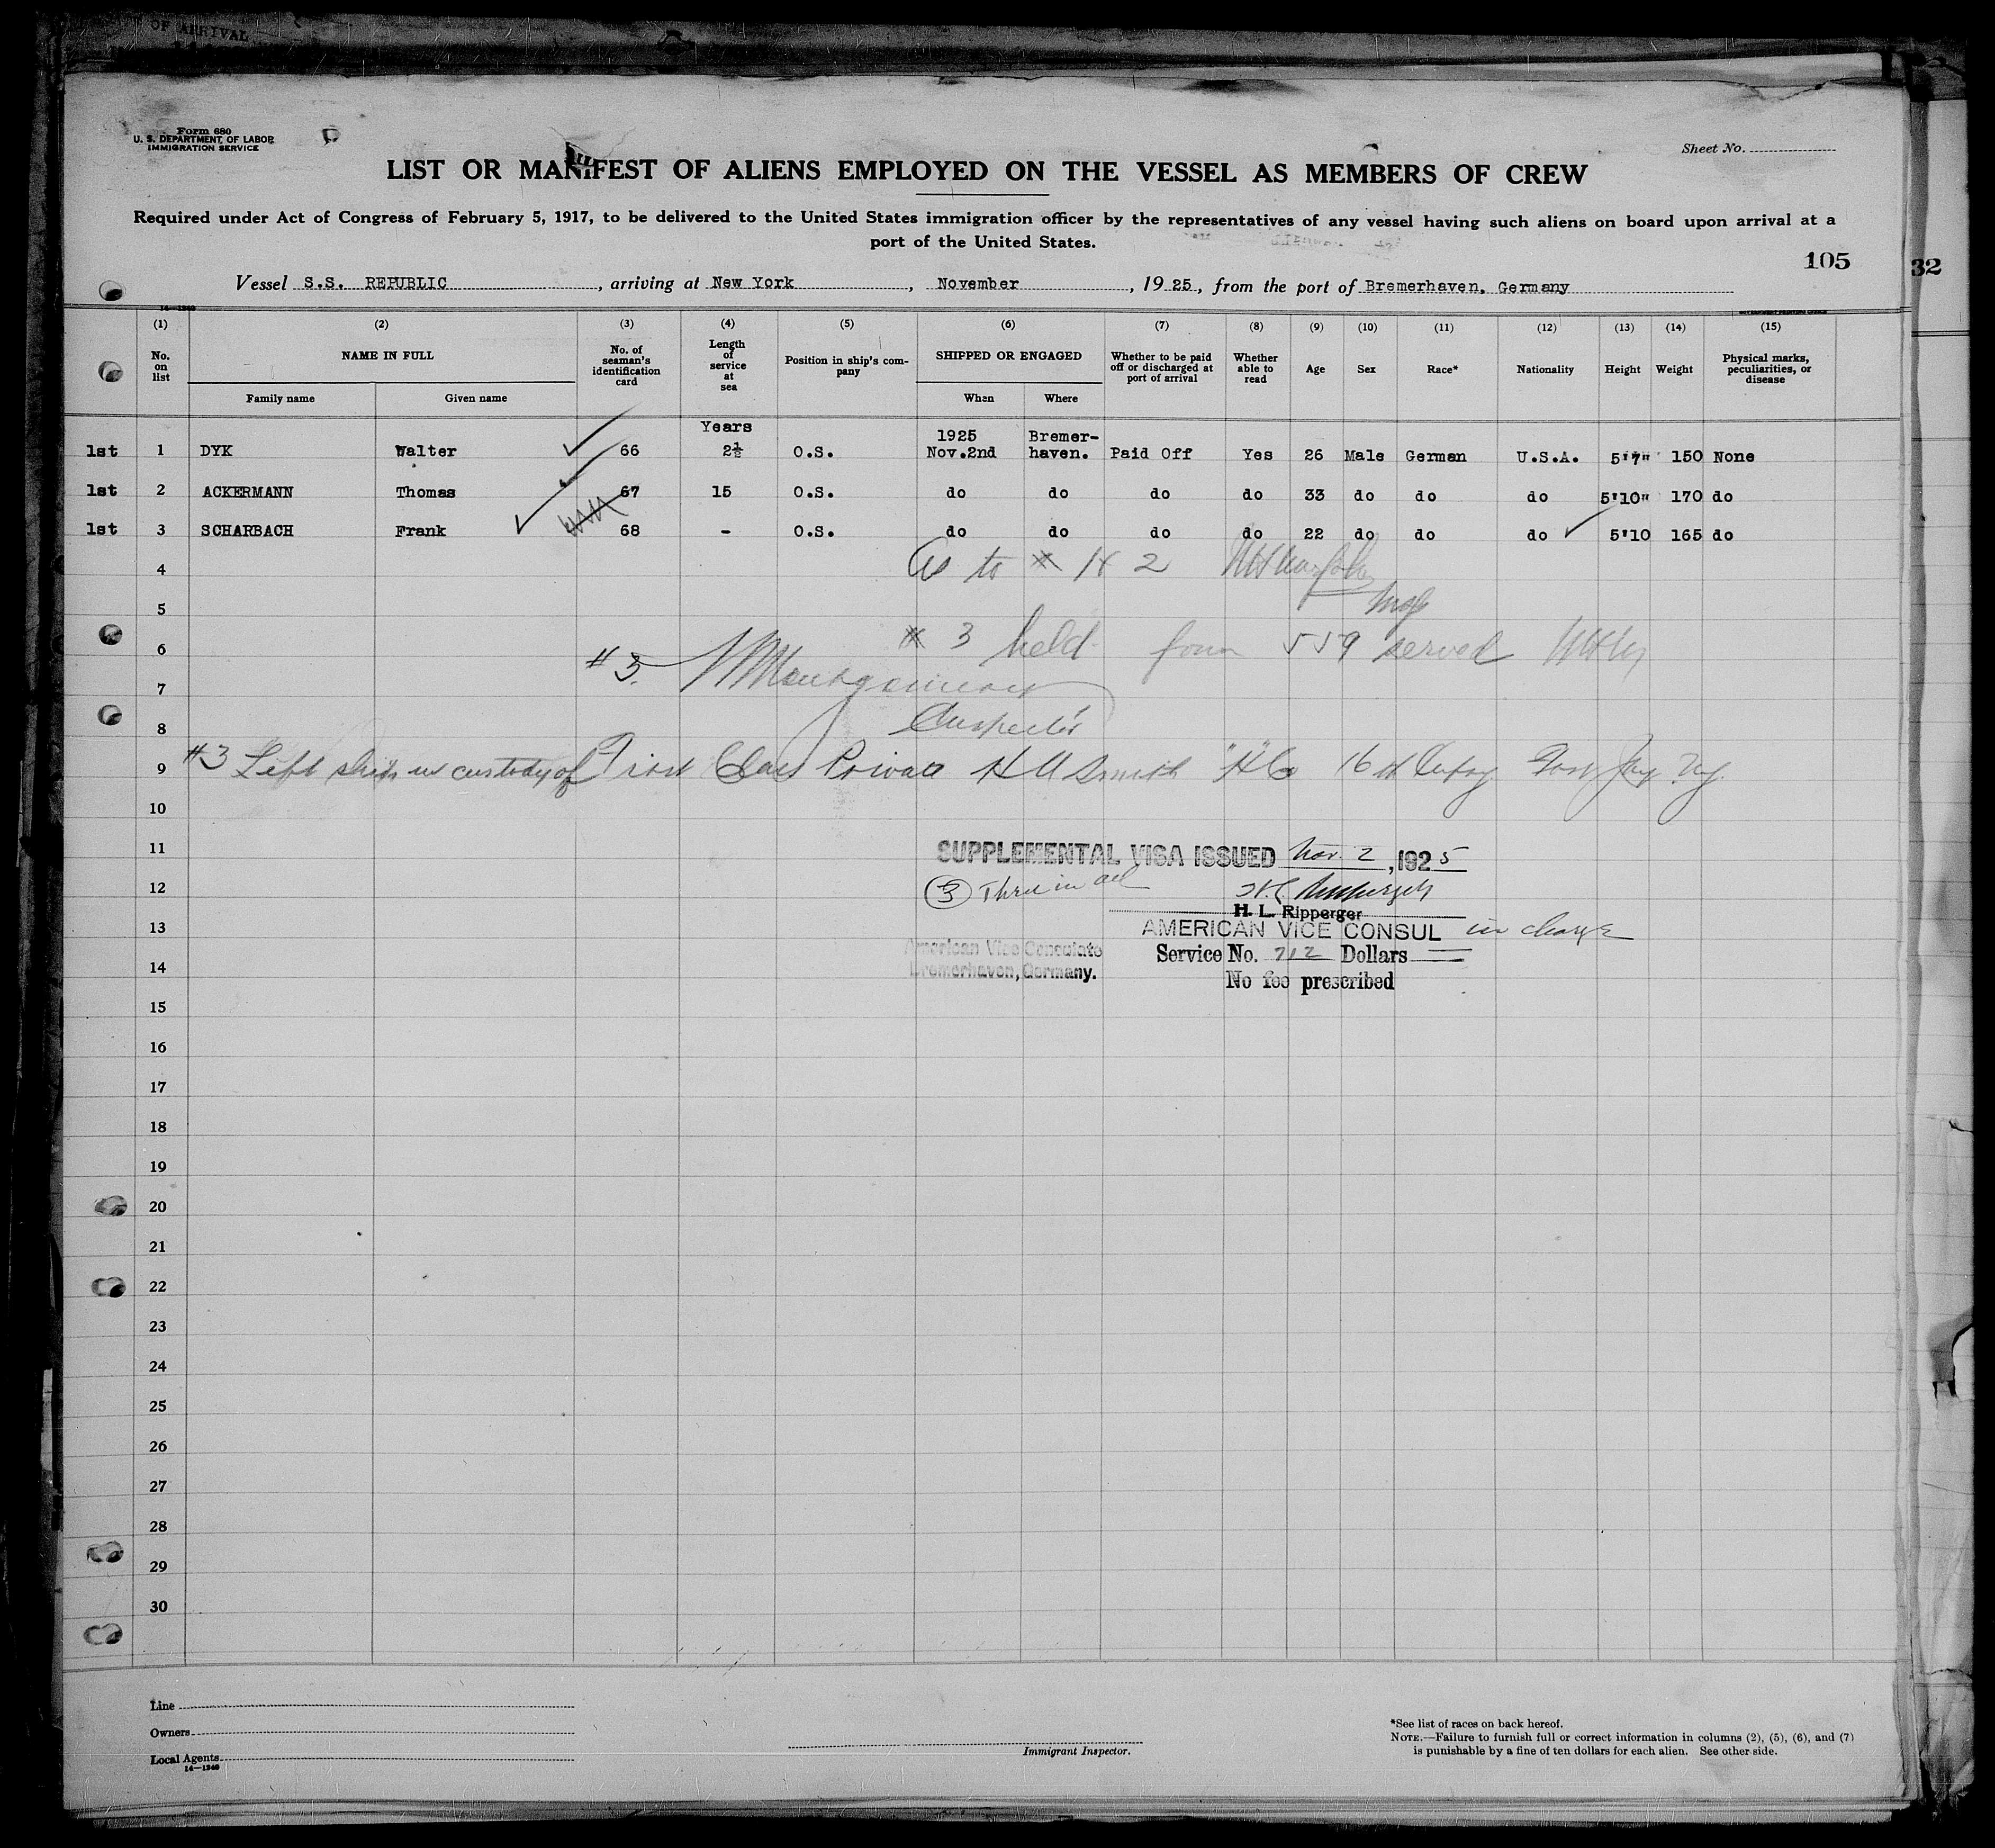 OF ARRIVAL
Form 680
U. S. DEPARTMENT OF LABOR
IMMIGRATION SERVICE
Sheet No.
LIST OR MANIFEST OF ALIENS EMPLOYED ON THE VESSEL AS MEMBERS OF CREW
Required under Act of Congress of February 5, 1917, to be delivered to the United States immigration officer by the representatives of any vessel having such aliens on board upon arrival at a
port of the United States.
105
32
Vessel S.S. REPUBLIC, arriving at New York, November, 1925, from the port of Bremerhaven, Germany
14—1240
(1) (2) (3) (4) (5) (6) (7) (8) (9) (10) (11) (12) (13) (14) (15)
No. on list
NAME IN FULL
Family name
Given name
No. of seaman's identification card
Length of service at sea
Position in ship's company
SHIPPED OR ENGAGED
When
Where
Whether to be paid off or discharged at port of arrival
Whether able to read
Age
Sex
Race*
Nationality
Height
Weight
Physical marks, peculiarities, or disease
Years 1925 Bremer-
1st 1 DYK Walter 66 2½ O.S. Nov.2nd haven. Paid Off Yes 26 Male German U.S.A. 5'7" 150 None
1st 2 ACKERMANN Thomas 67 15 O.S. do do do do 33 do do do 5'10" 170 do
1st 3 SCHARBACH Frank 68 - O.S. do do do do 22 do do do 5'10 165 do
4 As to # 1 & 2
5 Insp
6 # 3 held form 559 served
#3 Montgomery
7
8 Inspector
9 #3 Left ship in custody of First Class Private H A Smith "H" Co 16th Infty Fort Jay N.Y.
10
11 SUPPLEMENTAL VISA ISSUED Nov. 2, 1925
12 (3) Three in all H. L. Ripperger
H. L. Ripperger
13 AMERICAN VICE CONSUL in charge
American Vice Consulate
Service No. 712 Dollars
14 Bremerhaven, Germany.
No fee prescribed
15
16
17
18
19
20
21
22
23
24
25
26
27
28
29
30
Line
Owners
Local Agents
14—1240
Immigrant Inspector.
*See list of races on back hereof.
NOTE.—Failure to furnish full or correct information in columns (2), (5), (6), and (7)
is punishable by a fine of ten dollars for each alien. See other side.